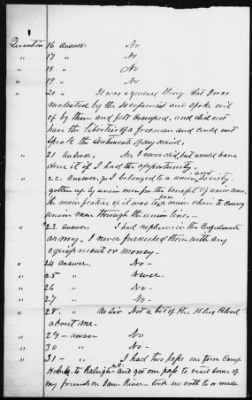 Question 16 Answer. No
" 17 " No
" 18 " No
" 19 " No
" 20 " It was a general thing that I was
molested by the secessionist and spoke evil
of by them and felt and did not
have the liberties of a freeman and could not
speak the sentiments of my mind.
" 21 Answer, No I never did but would have
done it if I had the opportunity.
" 22. Answer, yes I belonged to a union society,
gotten up by union men for the benefit of union men.
the main feature of it was union chain to carry
union men through the union lines.
" 23. answer. I had nephews in the Confederate
army. I never furnished them with any
equipments or money.
" 24 answer. No
" 25 " Never
" 26 " No
" 27 " No
" 28. " No Sir Not a bit of the Rebel Blood
about me.
" 29 answer No
" 30 " No
" 31 " I had two pass one from Camp
to Raleigh and got one pass to visit some of
my friends on Dan River took no oath to